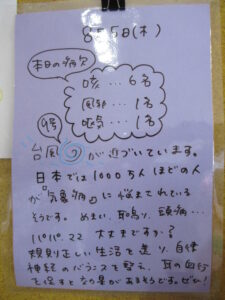 8月5日(木)
本日の病欠
咳…6名
風邪…1名
嘔気…1名
9号
台風が近づいています。
日本では1000万人ほどの人
が『気象病』に悩まされている
そうです。めまい、耳鳴り、頭痛…
パパ、ママ 大丈夫ですか?
規則正しい生活を送り、自律
神経のバランスを整え、耳の血行
を促すと効果があるそうです。ぜひ!